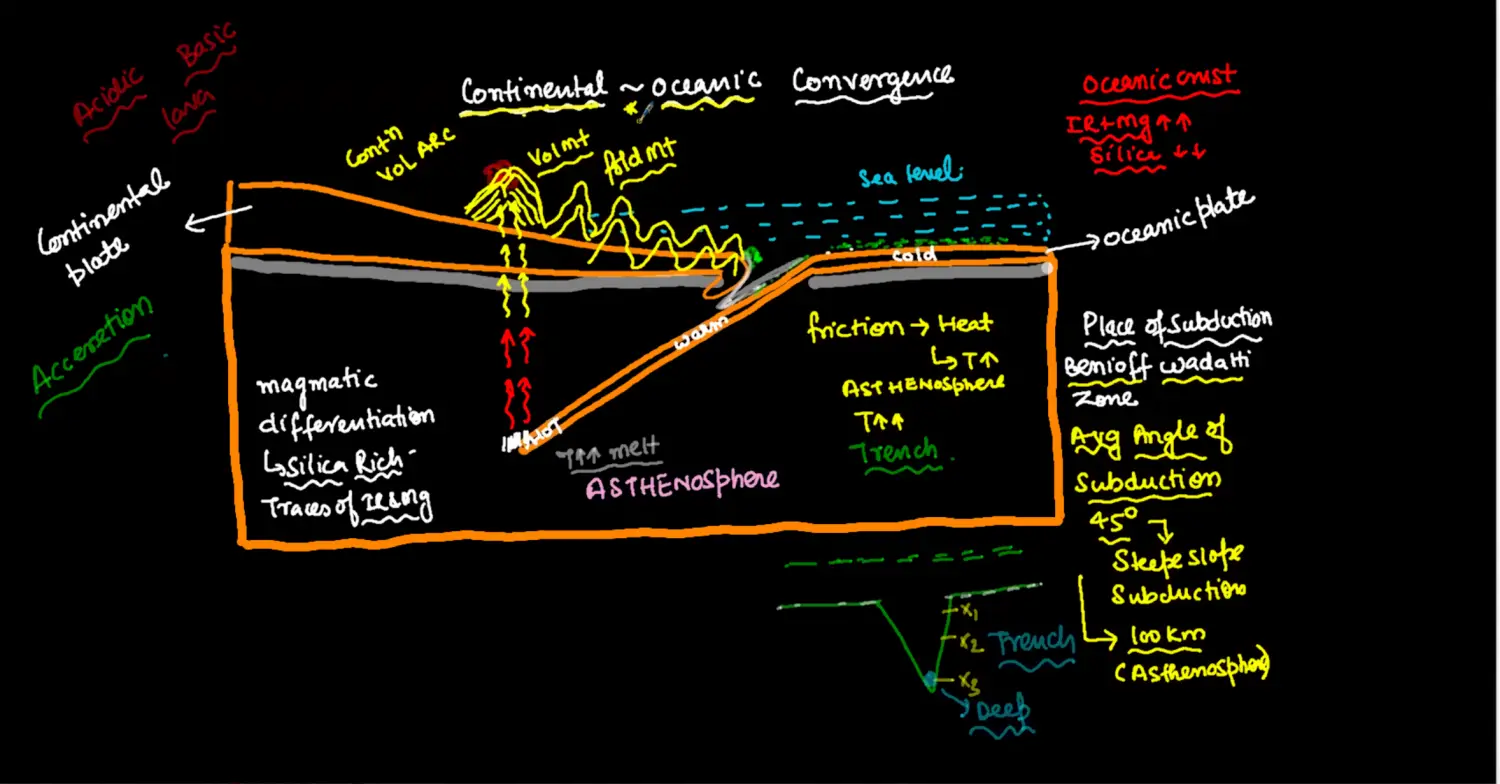 Acidic Basic
lava
Continental ~ Oceanic Convergence
Oceanic crust
IR+mg ↑↑
Silica ↓↓
Contn
Vol ARC
Vol mt
Fold Mt
Sea level
Continental
plate
Oceanic plate
cold
warm
HOT
Acceretion
friction → Heat
↳ T↑
ASTHENOSphere
T↑↑
Trench
Place of Subduction
Benioff wadatti
Zone
Avg Angle of
Subduction
45°
Steepe slope
Subduction
→ 100 km
(Asthenosphere)
magmatic
differentiation
↳ Silica Rich
Traces of IR & mg
T↑↑ melt
ASTHENOSphere
x1
x2 Trench
x3
→ Deep